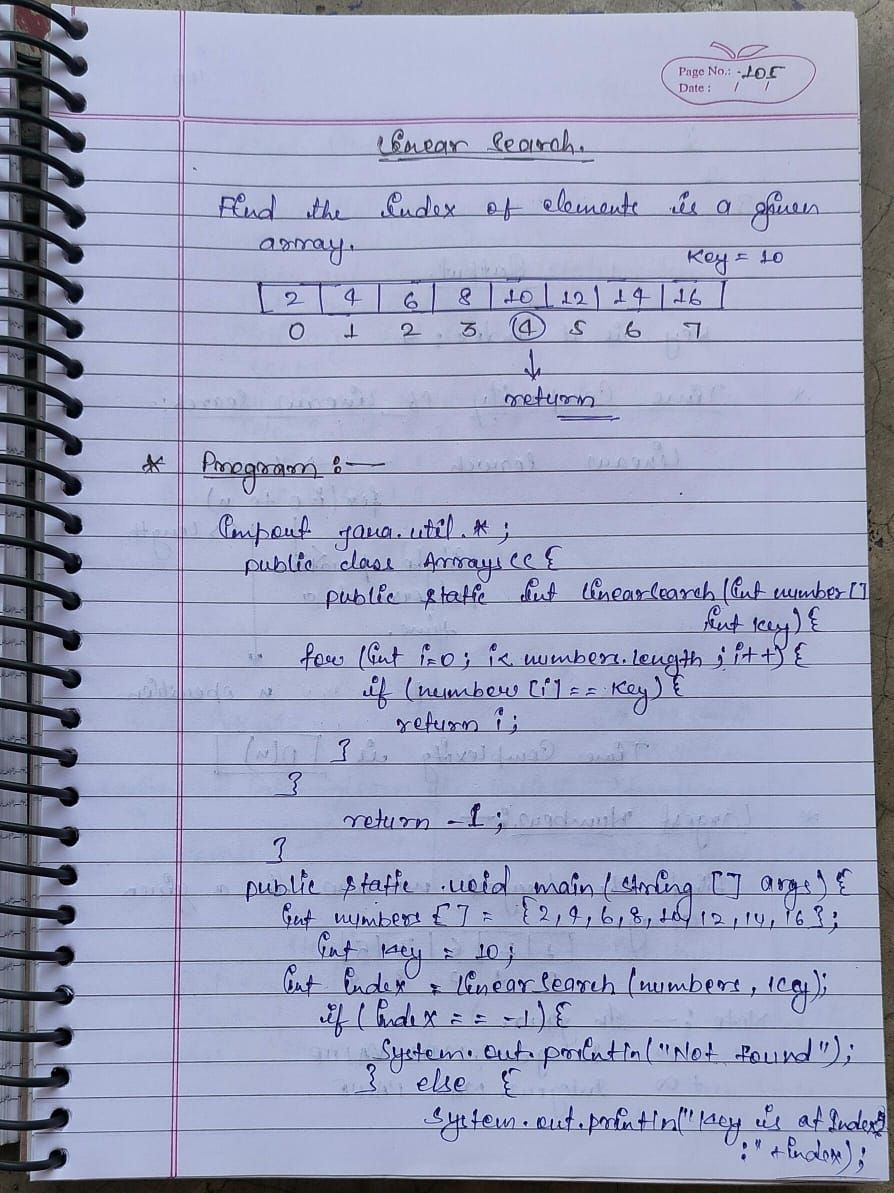 Page No.: 105
Date : / /
Linear Search.
Find the Index of elements is a given
array.
Key = 10
2 4 6 8 10 12 14 16
0 1 2 3 4 5 6 7
↓
return
* Program :—
Import java.util.* ;
public class Arrays CC {
public static int linearsearch (int number []
int key) {
for (int i=0 ; i< numbers.length ; i++) {
if (number [i] == key) {
return i ;
}
}
return -1 ;
}
public static void main (string [] args) {
int numbers [] = {2, 4, 6, 8, 10, 12, 14, 16 } ;
int key = 10 ;
int Index = linear search (numbers , key) ;
if ( Index == -1) {
System.out.println ("Not found") ;
} else {
System.out.println ("Key is at Index
:" + Index) ;